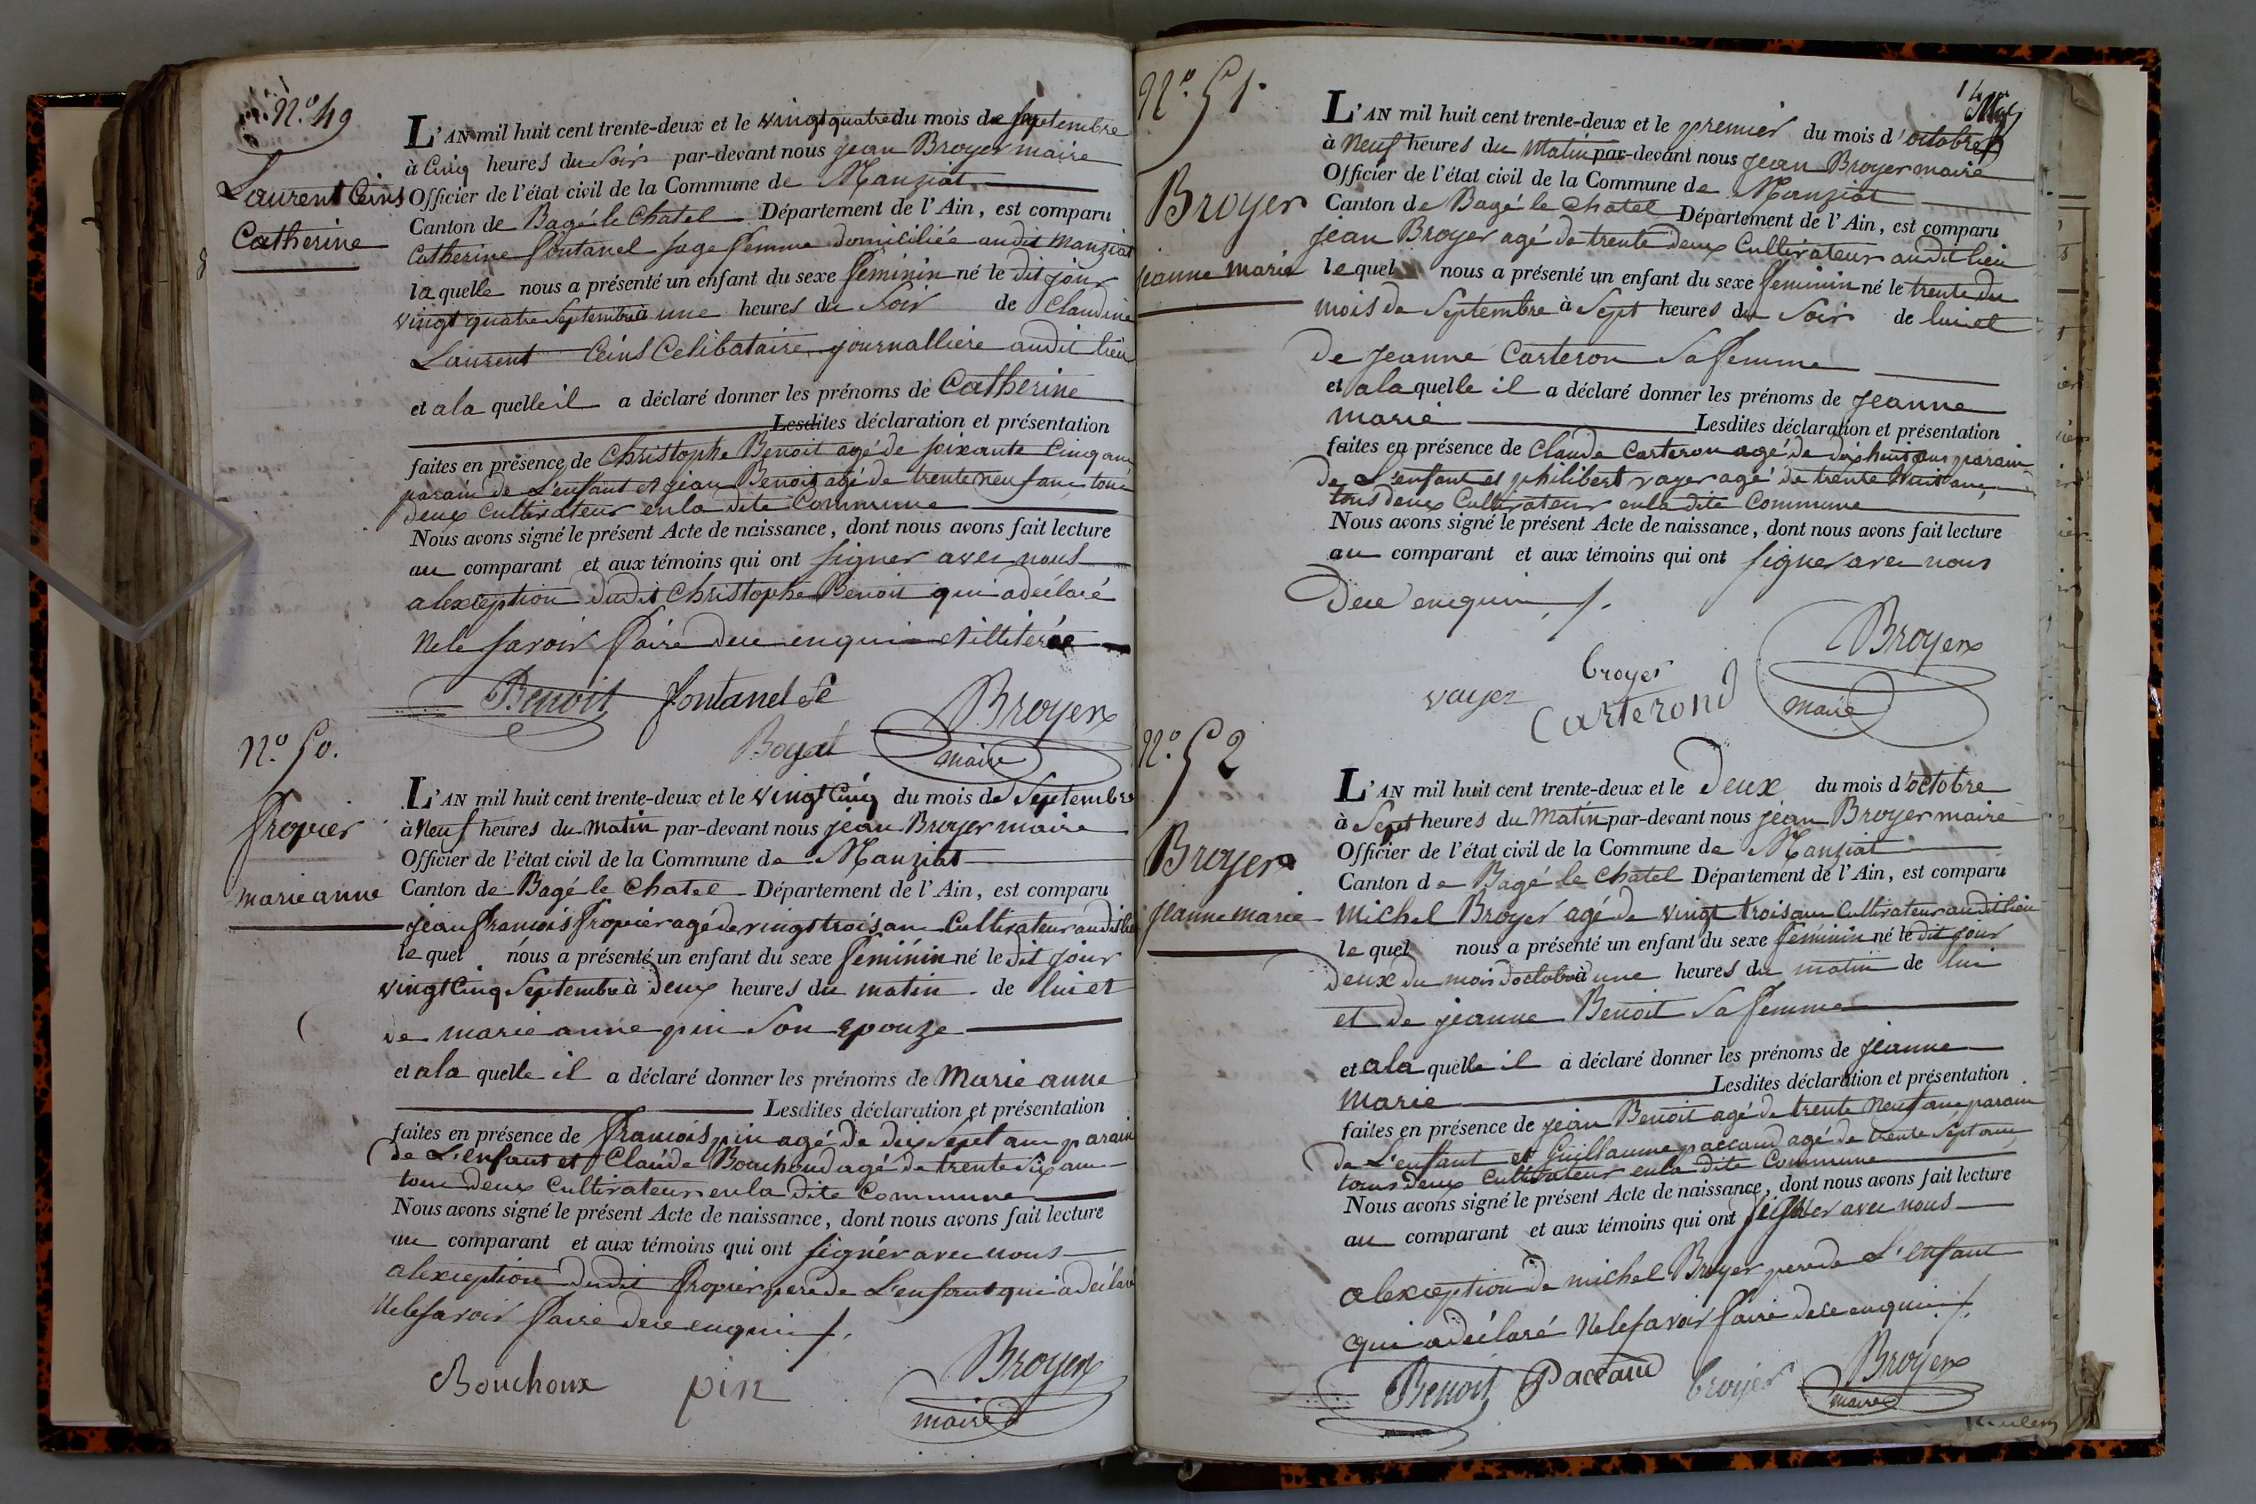 N.o 49
Laurent Ceins
Catherine
L'AN mil huit cent trente-deux et le vingt quatre du mois de septembre
à Cinq heures du soir par-devant nous jean Broyer maire
Officier de l'état civil de la Commune de Manziat
Canton de Bagé le Chatel Département de l'Ain, est comparu
Catherine fontanel sage femme domiciliée audit manziat
laquelle nous a présenté un enfant du sexe féminin né le dit jour
vingt quatre Septembre à une heures du Soir de Claudine
Laurent Ceins Célibataire journalliere audit lieu
et a la quelle il a déclaré donner les prénoms de Catherine
Lesdites déclaration et présentation
faites en présence de Christophe Benoit agé de soixante Cinq ans
parain de L'enfant et jean Benoit agé de trente neuf ans tous
deux cultivateur en la dite Commune
Nous avons signé le présent Acte de naissance, dont nous avons fait lecture
au comparant et aux témoins qui ont signer avec nous
alexception dudit Christophe Benoit qui a déclaré
Ne le savoir faire de ce enquis et illiterée
Benoit fontanel Broyer
Boyat maire
N.o 50.
fropier
marie anne
L'AN mil huit cent trente-deux et le vingt Cinq du mois de Septembre
à Neuf heures du matin par-devant nous jean Broyer maire
Officier de l'état civil de la Commune de Manziat
Canton de Bagé le Chatel Département de l'Ain, est comparu
jean francois fropier agé de vingt trois ans Cultivateur audit lieu
le quel nous a présenté un enfant du sexe féminin né le dit jour
vingt Cinq Septembre à deux heures du matin de lui et
de marie anne pin Son epouze
et a la quelle il a déclaré donner les prénoms de Marie anne
Lesdites déclaration et présentation
faites en présence de francois pin agé de dix Sept ans parain
de L'enfant et Claude Bouchoud agé de trente six ans
tous deux Cultivateur en la dite Commune
Nous avons signé le présent Acte de naissance, dont nous avons fait lecture
au comparant et aux témoins qui ont signér avec nous
alexception dudit fropier pere de L'enfant qui a déclaré
Ne le savoir faire de ce enquis
Bouchoux pin Broyer
maire
N.o 51
Broyer
jeanne marie
14
L'AN mil huit cent trente-deux et le premier du mois d'octobre
à Neuf heures du Matin par-devant nous jean Broyer maire
Officier de l'état civil de la Commune de Manziat
Canton de Bagé le Chatel Département de l'Ain, est comparu
jean Broyer agé de trente deux Cultivateur audit lieu
le quel nous a présenté un enfant du sexe feminin né le trente du
mois de Septembre à Sept heures du Soir de lui et
De Jeanne Carteron Sa femme
et a la quelle il a déclaré donner les prénoms de Jeanne
marie Lesdites déclaration et présentation
faites en présence de Claude Carteron agé de dix huit ans parain
de L'enfant et philibert vayer agé de trente huit ans
tous deux Cultivateur en la dite Commune
Nous avons signé le présent Acte de naissance, dont nous avons fait lecture
au comparant et aux témoins qui ont signer avec nous
De ce enquis
Broyer
broyer
vayer Carterond maire
N.o 52
Broyer
Jeanne marie
L'AN mil huit cent trente-deux et le Deux du mois d'octobre
à Sept heures du Matin par-devant nous jean Broyer maire
Officier de l'état civil de la Commune de Manziat
Canton de Bagé le Chatel Département de l'Ain, est comparu
Michel Broyer agé de vingt trois ans Cultivateur audit lieu
le quel nous a présenté un enfant du sexe féminin né le dit jour
deux du mois doctobre à une heures du matin de lui
et de jeanne Benoit Sa femme
et a la quelle il a déclaré donner les prénoms de jeanne
Marie Lesdites déclaration et présentation
faites en présence de jean Benoit agé de trente Neuf ans parain
de L'enfant et Guillaume paccaud agé de trente Sept ans
tous deux Cultivateur en la dite Commune
Nous avons signé le présent Acte de naissance, dont nous avons fait lecture
au comparant et aux témoins qui ont signer avec nous
alexception de michel Broyer pere de L'enfant
qui a déclaré Ne le savoir faire de ce enquis
Benoit Paccaud broyer Broyer
maire